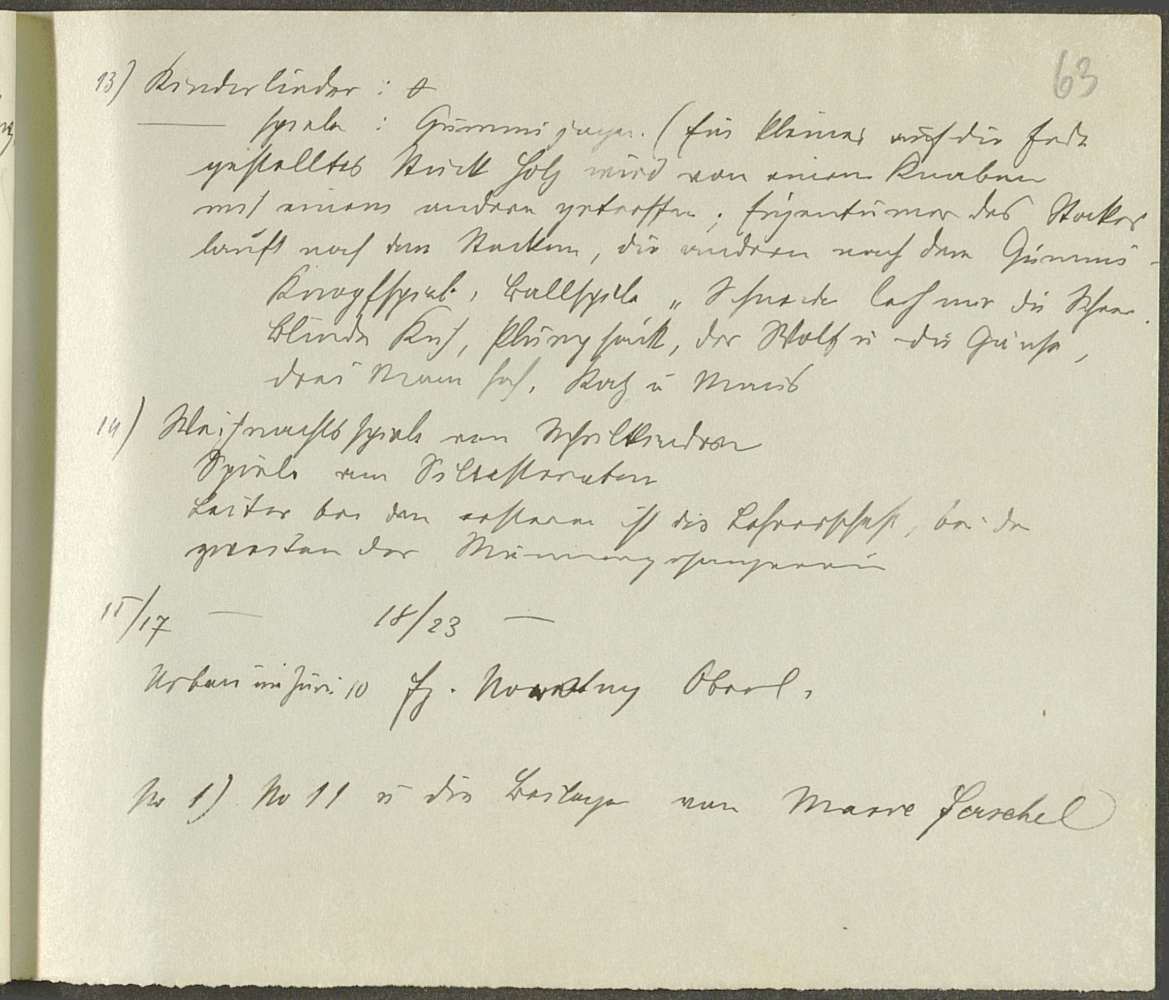 63
13) Kinderlieder :
spiele : Gummi jagen. (Ein kleines auf die Erde
gestelltes Stück Holz wird von einem Knaben
mit einem andern getroffen, Eigentümer des Stockes
lauft nach dem Stocken, die andern nach dem Gummi -
Knopfspiel, Ballspiele „ Schneider leih mer die Scher.
Blinde Kuh, Plumpsack, der Wolf u die Gänse,
drei Mann hoch, Katz u Maus
14) Weihnachtsspiele von Schulkindern
Spiele am Silvesterabend
Leiter bei den ersteren ist die Lehrerschaft, bei den
zweiten der Männergesangverein
15/17 — 18/23 —
Urbau im Juni 10 Fz. Oberl.
No 1) No 11 u die Beilage von Marie Herschel